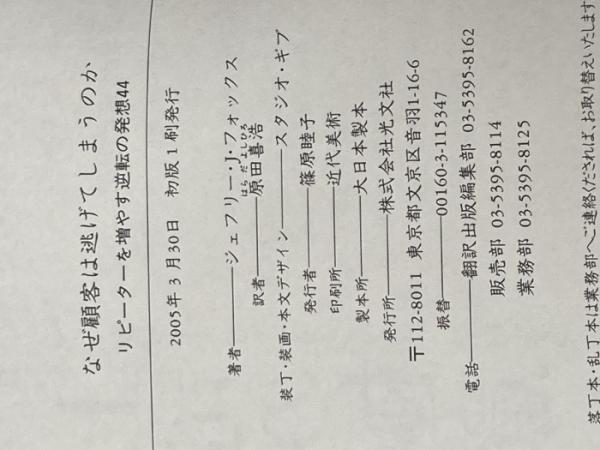 なぜ顧客は逃げてしまうのか
リピーターを増やす逆転の発想44
2005年3月30日 初版1刷発行
著者――ジェフリー・J・フォックス
訳者――原田喜浩
はらだよしひろ
装丁・装画・本文デザイン――スタジオ・ギブ
発行者――篠原睦子
印刷所――近代美術
製本所――大日本製本
発行所――株式会社光文社
〒112-8011 東京都文京区音羽1-16-6
振替――00160-3-115347
電話――翻訳出版編集部 03-5395-8162
販売部 03-5395-8114
業務部 03-5395-8125
落丁本・乱丁本は業務部へご連絡くだされば、お取り替えいたします